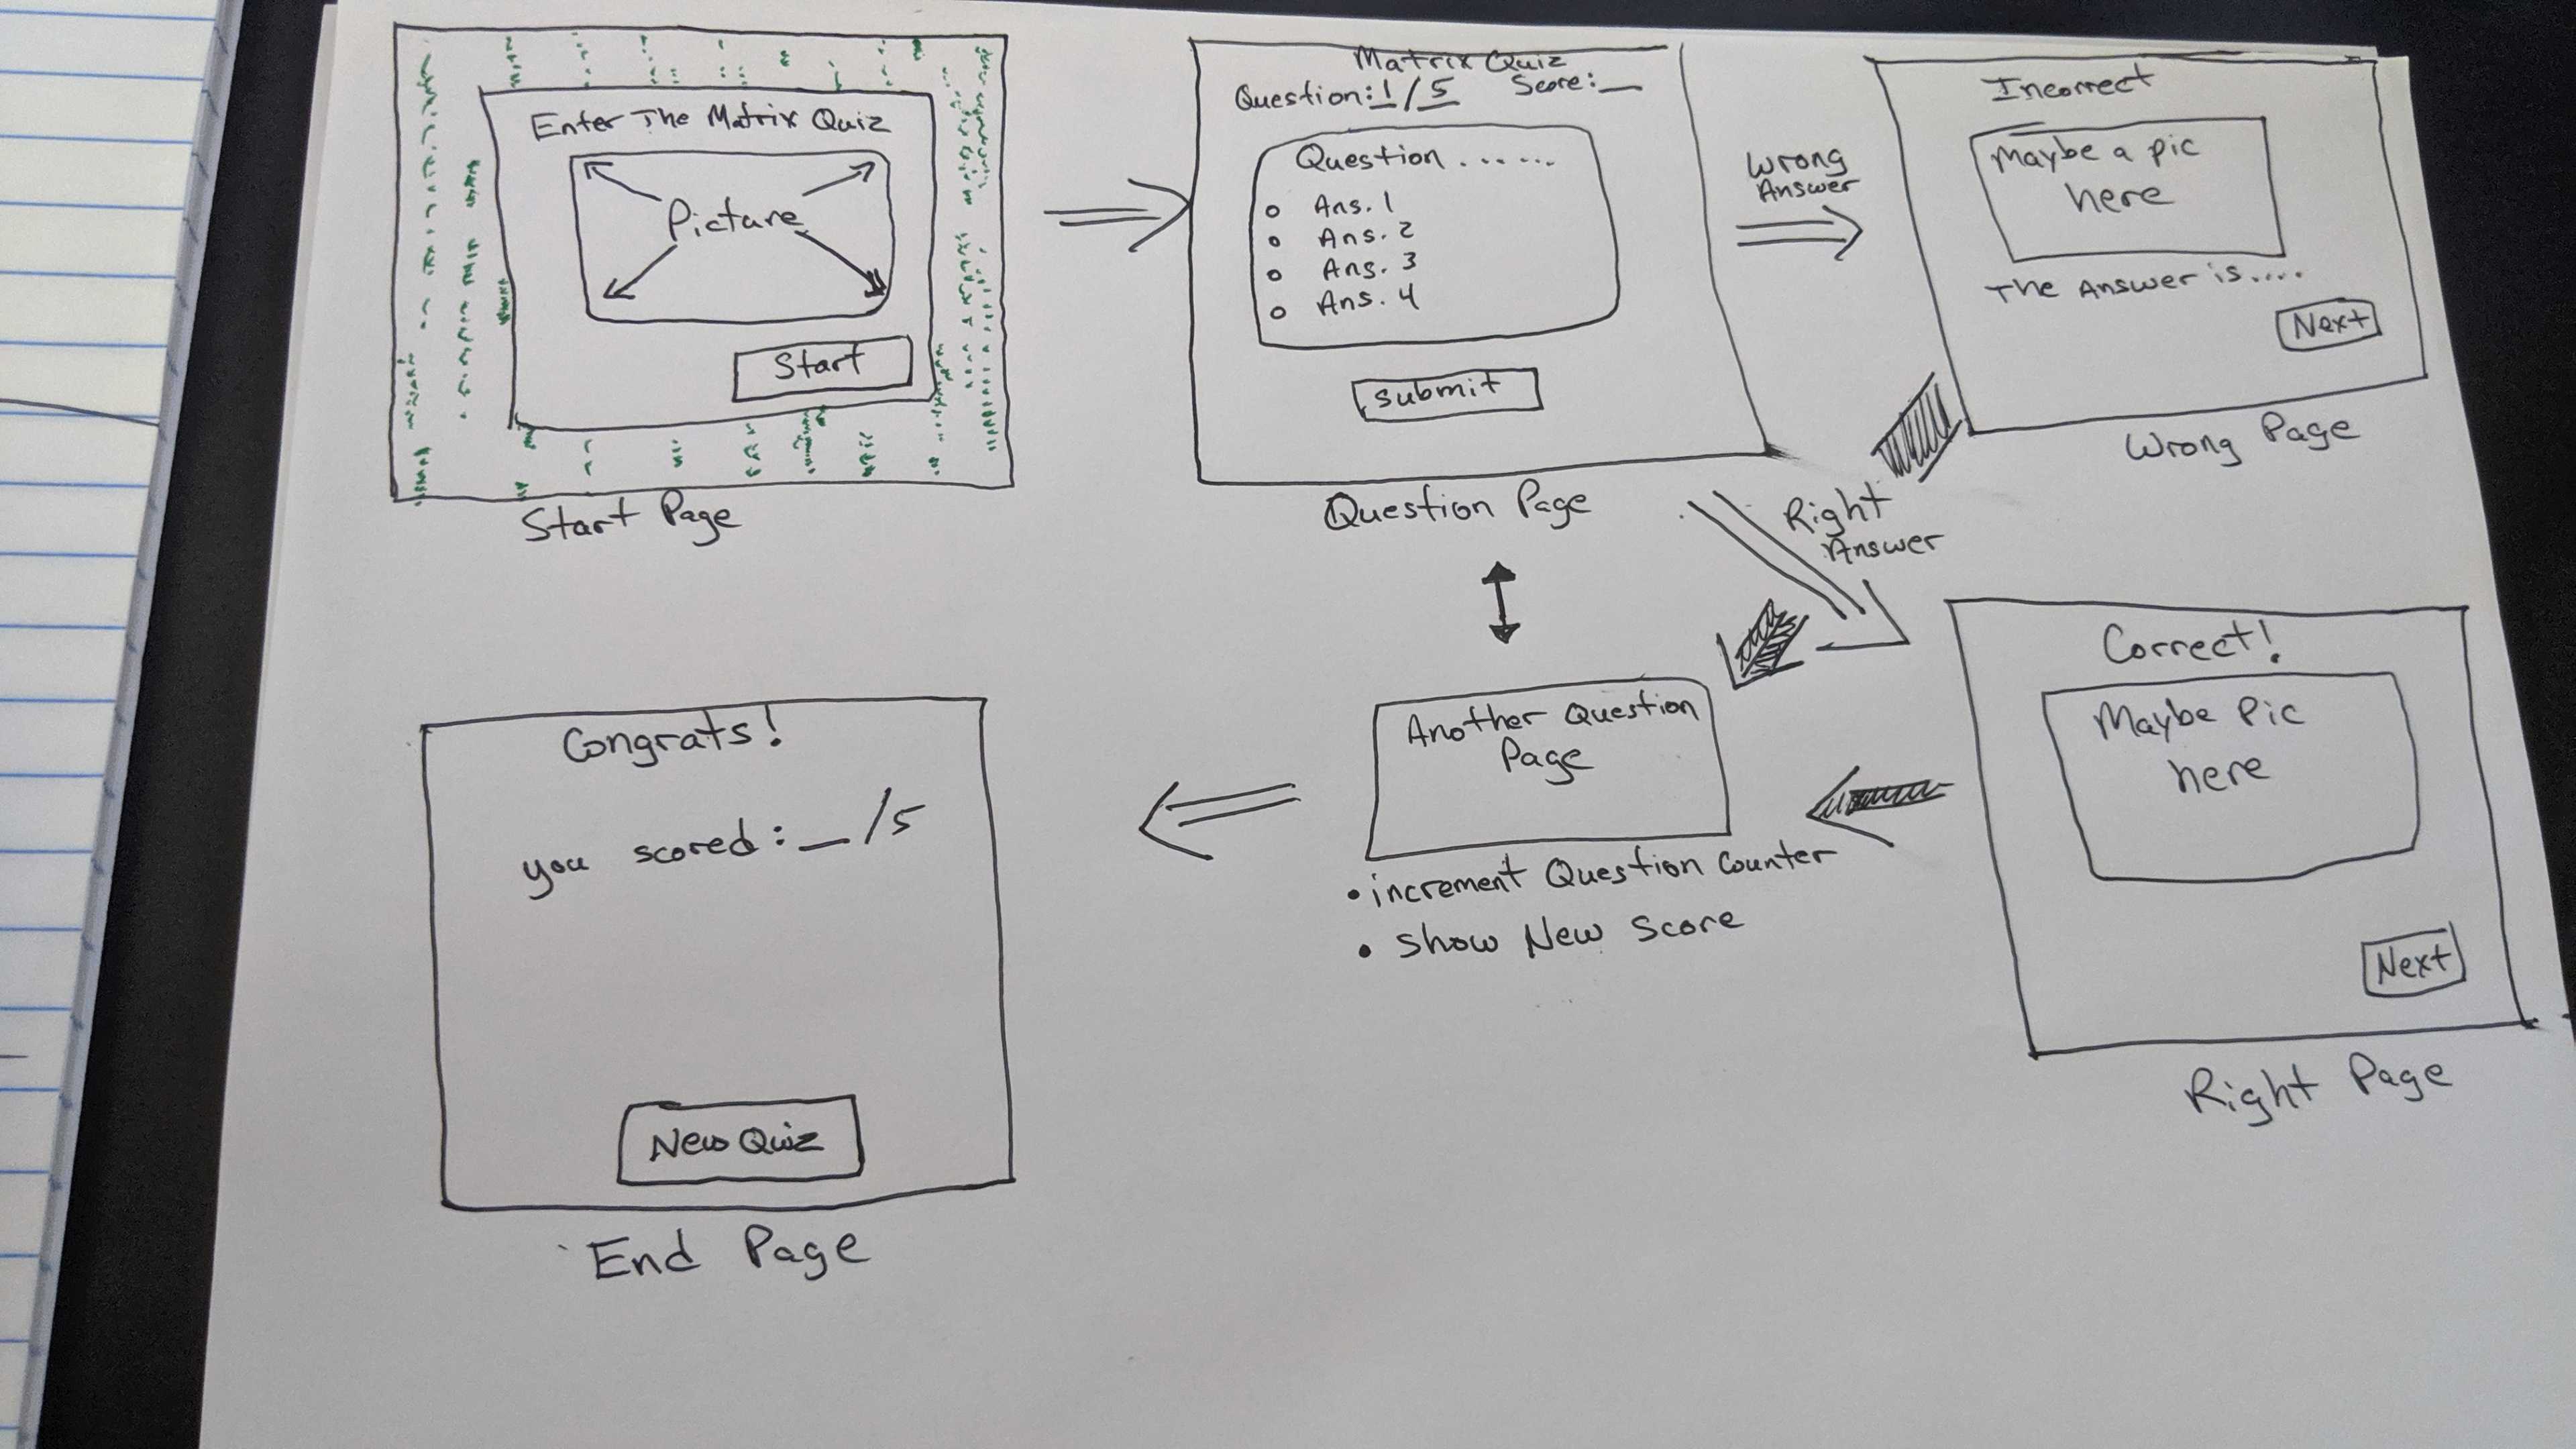 Enter The Matrix Quiz
Picture
Start
Start Page
Matrix Quiz
Question: 1/5 Score: __
Question ......
Ans. 1
Ans. 2
Ans. 3
Ans. 4
submit
Question Page
Wrong
Answer
Incorrect
Maybe a pic
here
The Answer is....
Next
Wrong Page
Right
Answer
Correct!
Maybe Pic
here
Next
Right Page
Another Question
Page
• increment Question Counter
• Show New Score
Congrats!
you scored: __/5
New Quiz
End Page